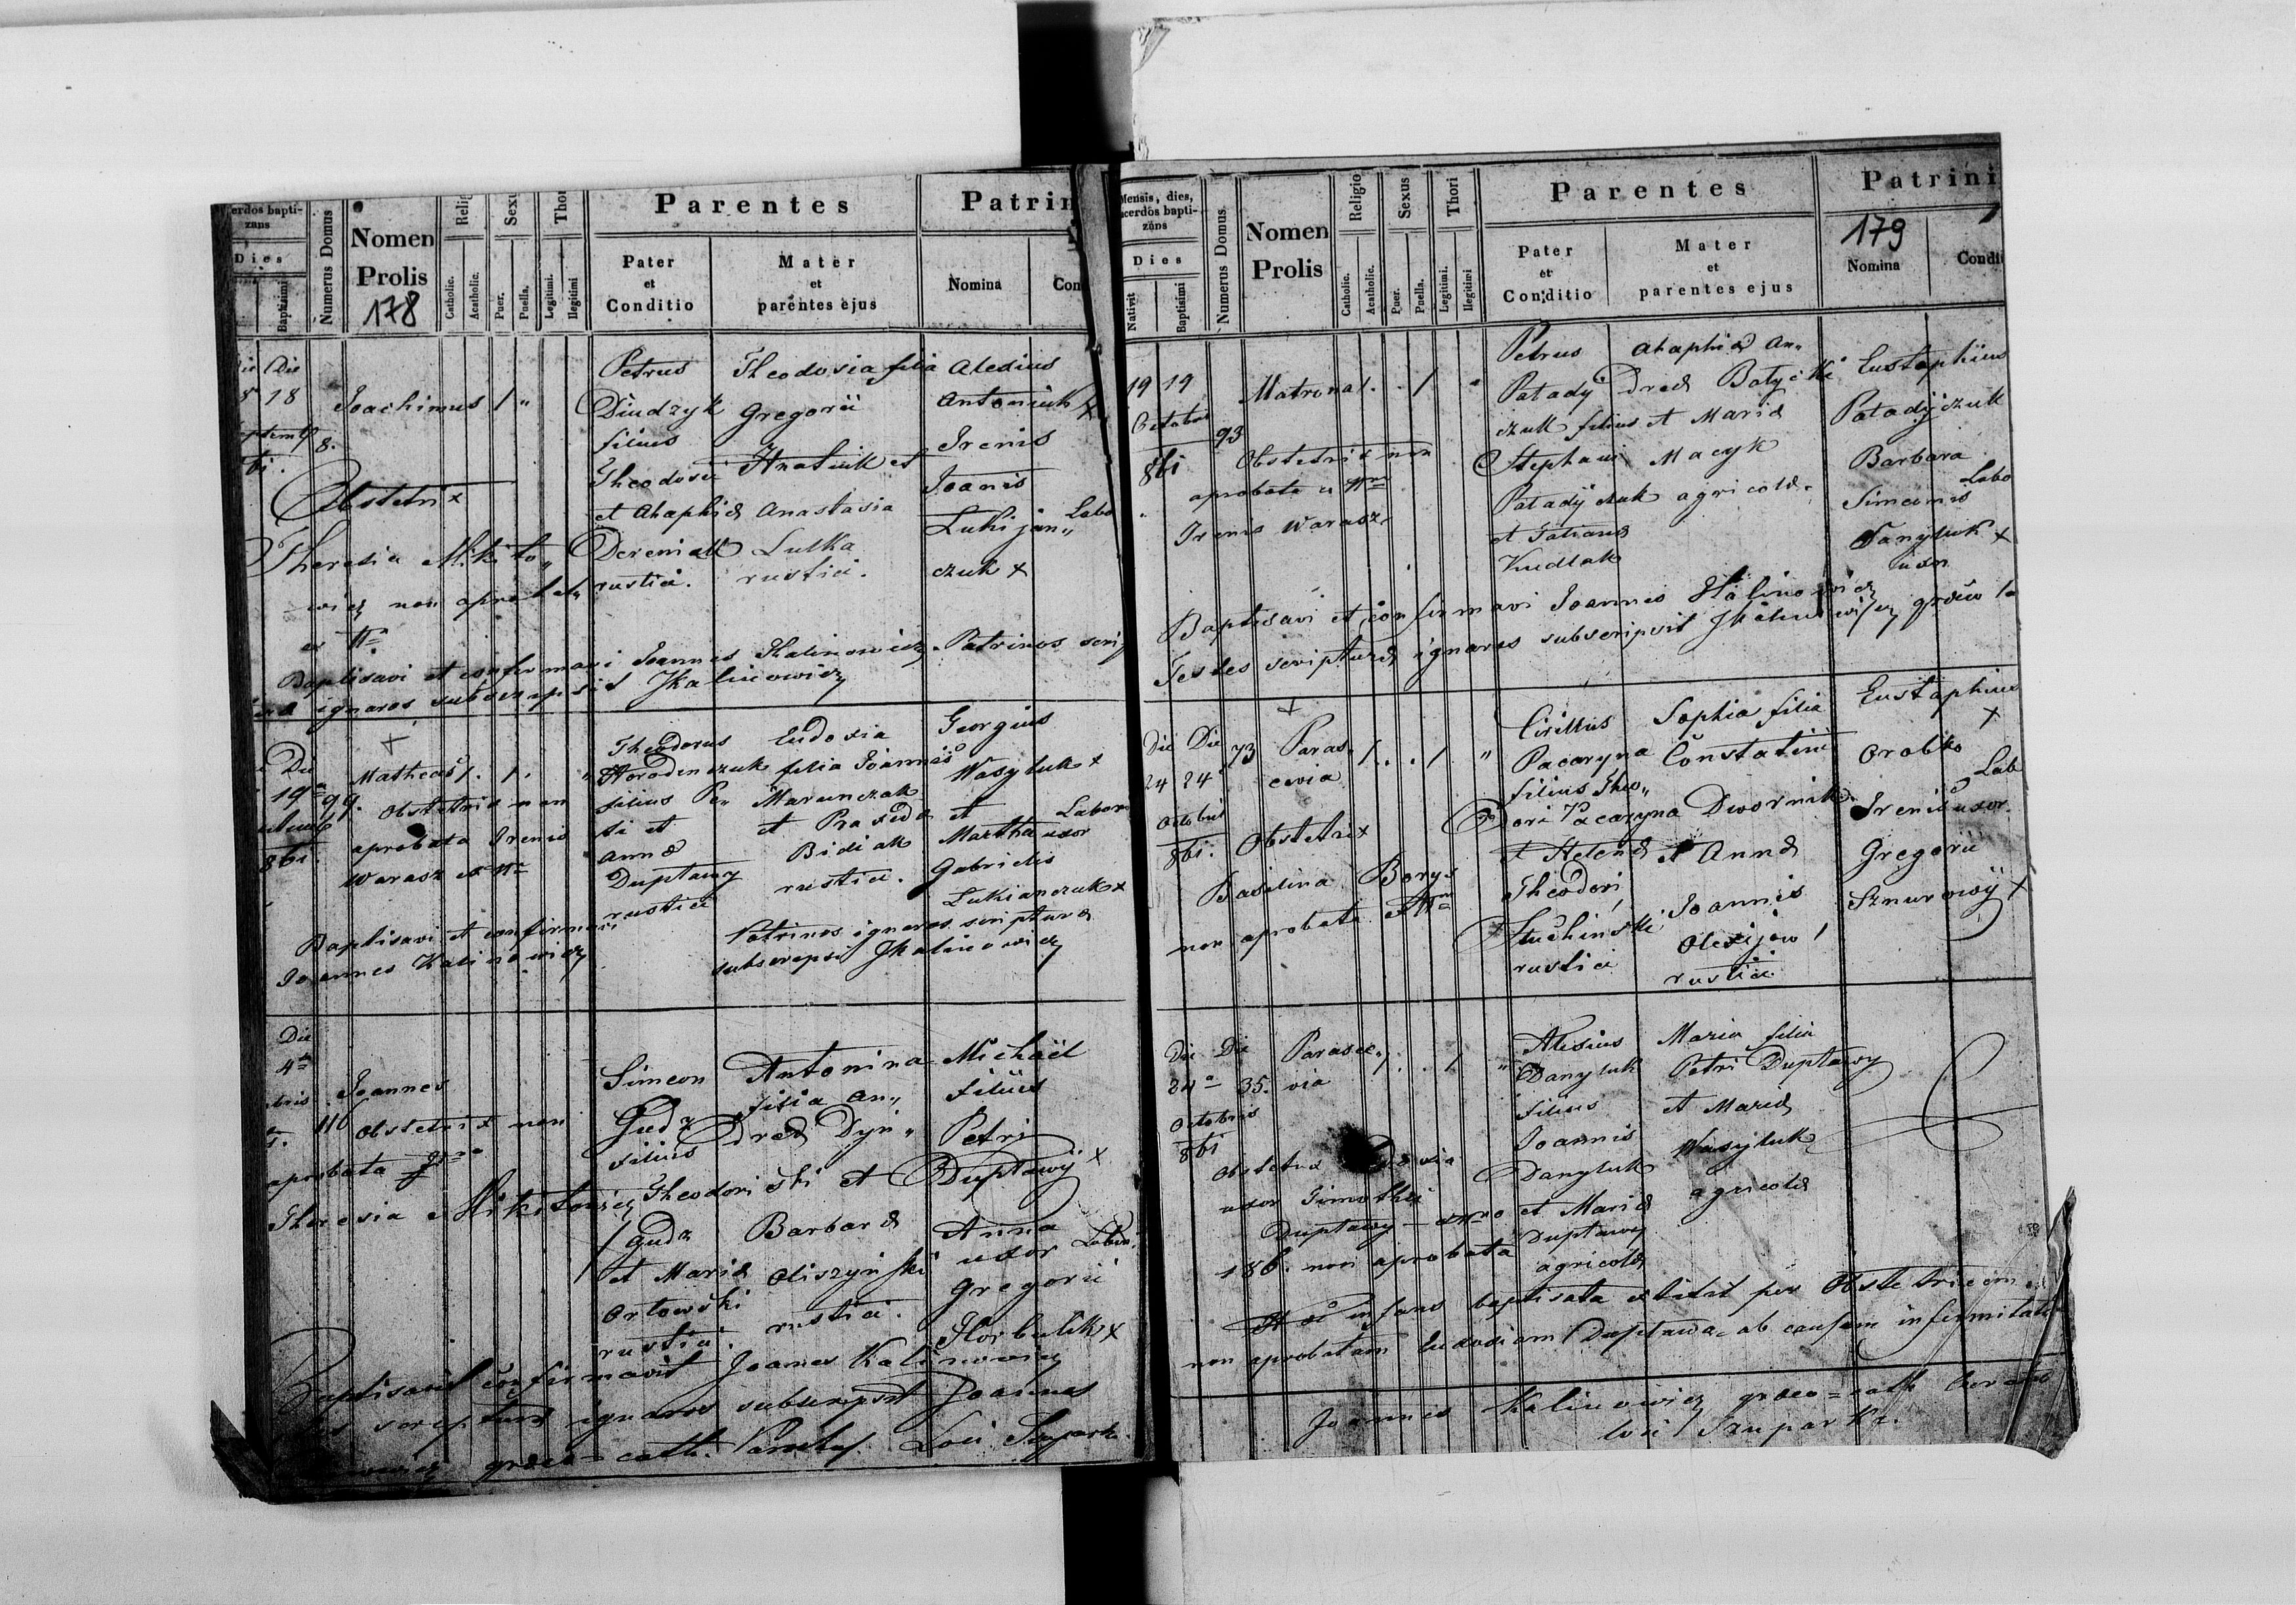 erdos bapti-
zans
Dies
Baptismi
Numerus Domus
Nomen
Prolis
178
Relig
Catholic.
Acatholic.
Sexu
Puer.
Puella.
Thor
Legitimi.
Illegitimi
Parentes
Pater
et
Conditio
Mater
et
parentes ejus
Patrin
Nomina
Con
Die
18
8.
Joachimus 1 "
Obstetrix
Theresia Mikito„
wicz non aprobat„
Petrus
Diudzyk
filius
Theodosii
et Ahaphiæ
Dereniak
rustici.
Theodosia filia
Gregorii
Hnatiuk et
Anastasia
Lutka
rustici.
Alexius
Antoniuk x
Irenis
Joanis
Lukijan„ Labo
czuk x
Baptisavi et confirmavi Joannes Kalinowicz. Patrinos scrip
ignaros subscripsit JKalinowicz
Die
19
99.
8bi.
x
Matheas 1. 1.
Obstetrix non
aprobata Irenis
Warasz
Theodorus
Horodenczuk
filius Pe„
tri et
Annæ
Duptawy
rustici
Eudoxia
filia Joannis
Marunczak
et Praxeda
Bidiak
rustici.
Georgius
Wasyluk x
et Labor
Martha uxor
Gabrielis
Lukianczuk x
Baptisavi et confirmavi
Joannes Kalinowicz
Patrinos ignaros scripturæ
subscripsi JKalinowicz
Die
4ta
110
Joannes
Obstetrix non
aprobata
Theresia Mikitowicz
Simeon
Gudz
filius
Theodori
Gudz
et Mariæ
Orłowski
rustici.
Antonina
filia An„
dreæ Dyn„
ski et
Barbaræ
Oliszynski
rustici.
Michaël
filius
Petri
Duptawÿ x
Anna
uxor Labor
Gregorii
Horbulik x
Baptisavit confirmavit Joannes Kalinowicz
scripturæ ignaros subscripsit Joannes
græco=cath. Loci
Mensis, dies,
acerdos bapti-
zans
Dies
Natrit
Baptismi
Numerus Domus
Nomen
Prolis
Religio
Catholic.
Acatholic.
Sexus
Puer.
Puella.
Thori
Legitimi.
Illegitimi
Parentes
Pater
et
Conditio
Mater
et
parentes ejus
Patrini
179
Nomina
Condi
19 19
Octobr
8bi
93
Matrona 1. . 1 "
Obstetrix non
aprobata
Irenis Warasz
Petrus
Patady
czuk filius
Stephani
Patadÿczuk
et Tatianæ
Kudlak
Ahaphia An„
dreæ Batycki
et Mariæ
Macyk
agricolæ.
Eustaphius
Patadÿczuk
Barbara
Simeonis Labo
Danyluk x
uxor
Baptisavi et confirmavi Joannes Kalinowicz
Testes scripturæ ignaros subscripsit JKalinowicz
Die Die
24 24
Octobris
8bi.
73
x
Paras„
cevia
1. . . 1 "
Obstetrix
Basilina Borys
non aprobata
Cirillus
Pacaryna
filius Theo„
dori Pacaryna
et Helenæ
Theodori
Stuchinski
rustici
Sophia filia
Constatini
Dwornik.
et Annæ
Joannis
Olexijow
rustici.
Eustaphius
x
Orobko
Lab
Irenis uxor.
Gregorii
Sznurowÿ x
Die Die
24a 35.
Octobris
8bi
Parasce„
via
Obstetrix
uxor Timothei
Duptawy
186. non aprobata
Alexius
Danyluk
filius
Joannis
Danyluk
et Mariæ
Duptawy
agricolæ
Maria filia
Petri Duptawy
et Mariæ
Wasyluk
agricolæ
infans baptisata extitit per Obstetricem
non aprobatam Eudoxiam Duptawa ab causam infirmitatis
Joannes Kalinowicz græco=cath
loci Szuparka.